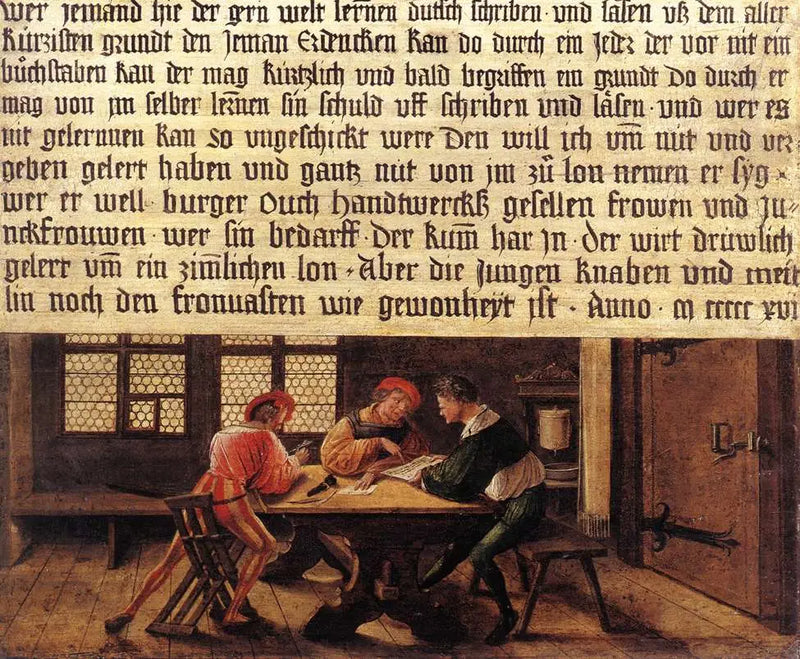 wer Jemand hie der gern welt lernen dutsch schriben und läsen uß dem aller
kürzisten grundt den Jeman Erdencken kan do durch ein Jeder der vor nit ein
büchstaben kan der mag kürtzlich und bald begriffen ein grundt do durch er
mag von jm selber lernen sin schuld uff schriben und läsen · und wer es
nit gelernnen kan so ungeschickt were Den will ich um nüt und ver
geben gelert haben und gantz nüt von jm zů lon nemen er syg ·
wer er well · burger Ouch handtwercks gesellen frowen und Ju
nckfrouwen · wer sin bedarff · der kum har jn · der wirt drüwlich
gelert um ein zimlichen lon · Aber die Jungen knaben und meit
lin noch den fronuasten wie gewonheyt jst · Anno · m ccccc xvi